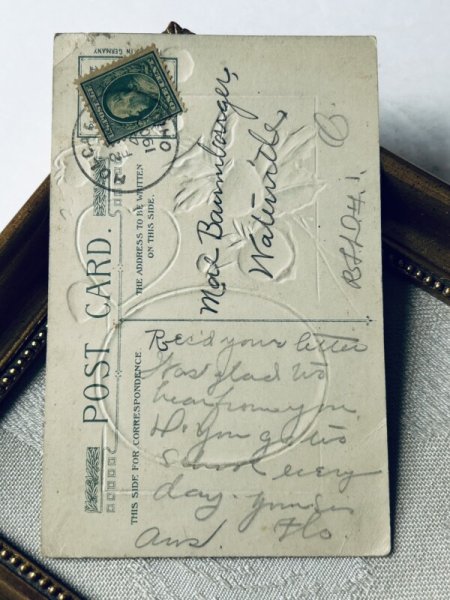 POST CARD.
THIS SIDE FOR CORRESPONDENCE
THE ADDRESS TO BE WRITTEN
ON THIS SIDE.
IN GERMANY
Waterville,
O.
Rec'd your letter
Was glad to
hear from you.
Do you go to
School every
day. yours
Ans. Flo